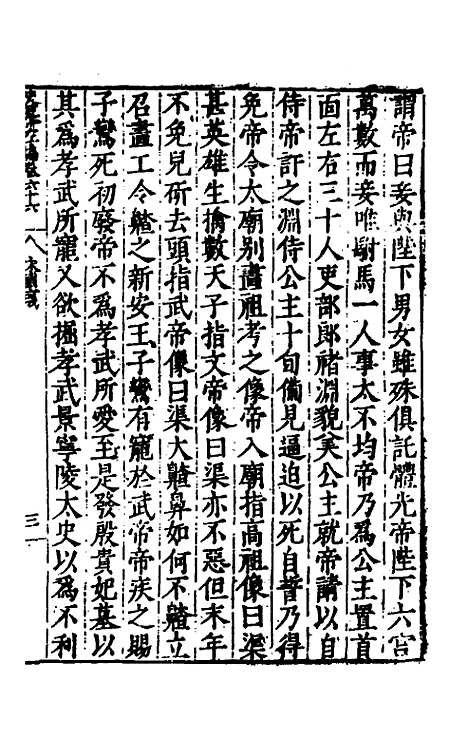 謂帝曰妾與陛下男女雖殊俱託體先帝陛下六宮
萬數而妾唯駙馬一人事太不均帝乃為公主置首
面左右三十人吏部郎褚淵貌美公主就帝請以自
侍帝許之淵侍公主十旬備見逼迫以死自誓乃得
免帝令太廟別畫祖考之像帝入廟指高祖像曰渠
甚英雄生擒數天子指文帝像曰渠亦不惡但末年
不免兒斫去頭指武帝像曰渠大齇鼻如何不齇立
召畫工令齇之新安王子鸞有寵於武帝帝疾之賜
子鸞死初廢帝不為孝武所愛至是發殷貴妃墓以
其為孝武所寵又欲掘孝武景寧陵太史以為不利
卷六十六
三